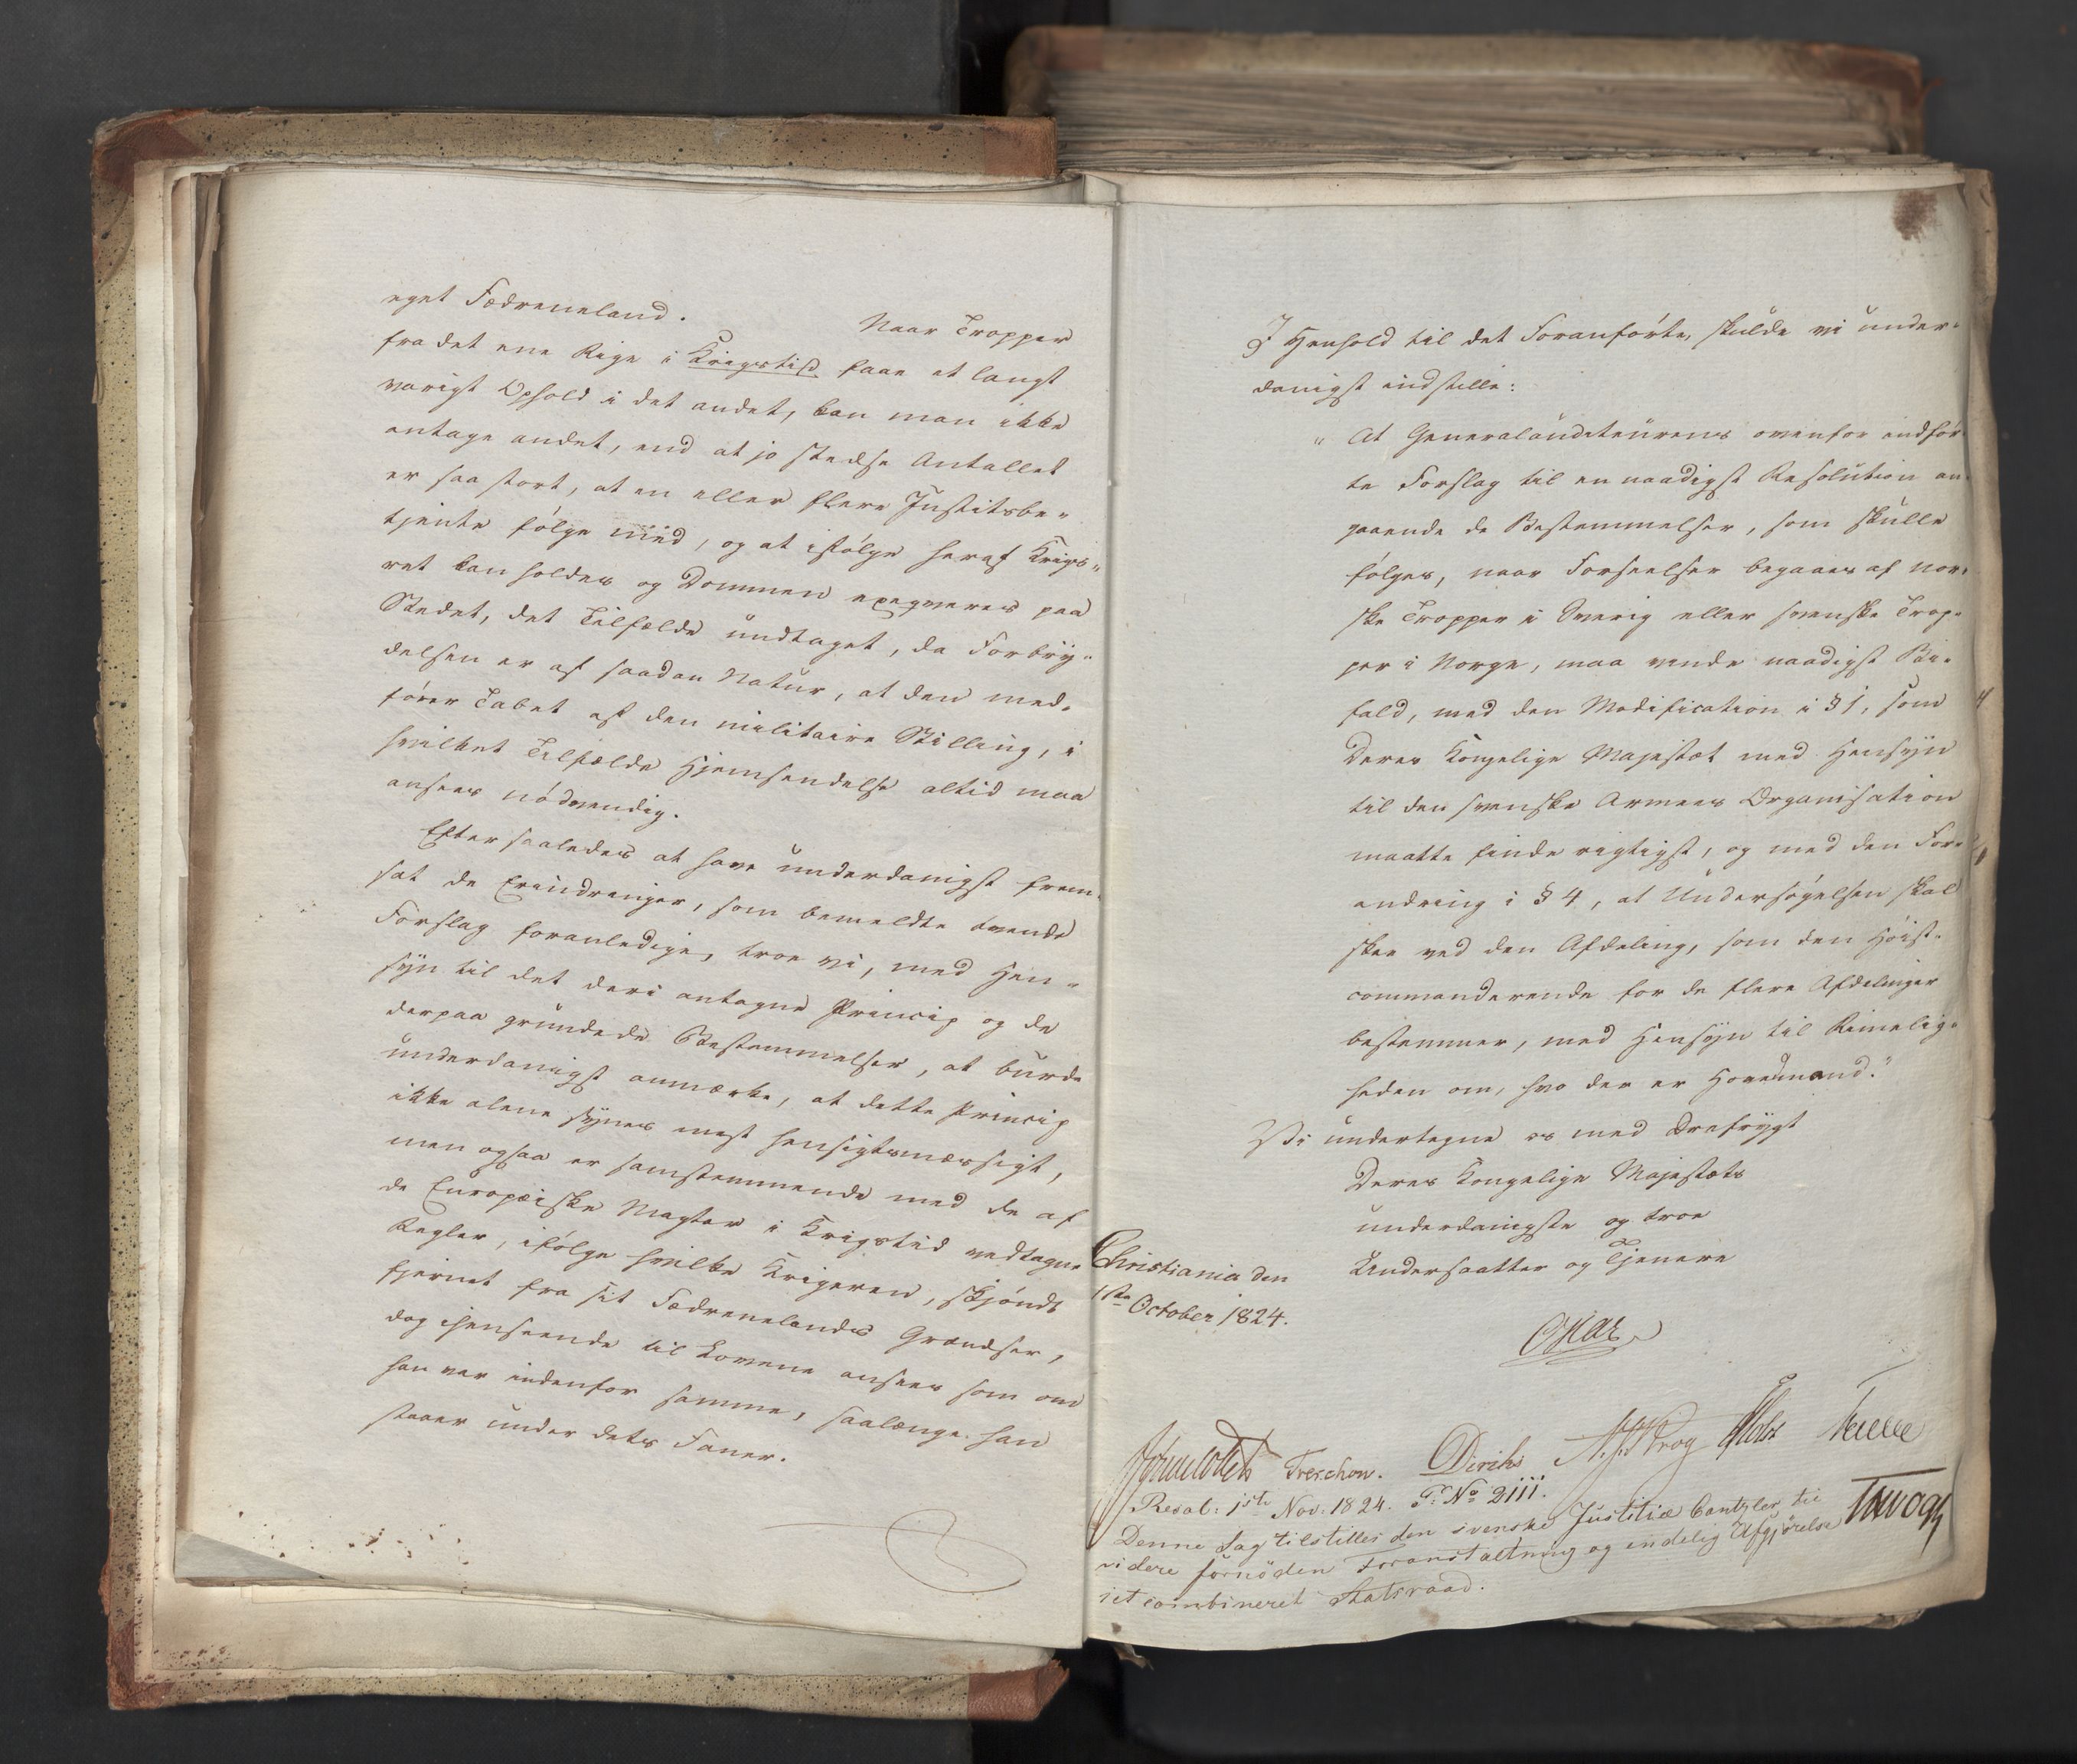 eget Fædreneland.
Naar Tropper
fra det ene Rige i Krigstid faae et langt
varigt Ophold i det andet, kan man ikke
antage andet, end at jo stedse Antallet
er saa stort, at en eller flere Justitsbe-
tjente følge med, og at ifølge heraf Krigs-
ret kan holdes og Dommen exeqveres paa
Stedet, det Tilfælde undtaget, da Forbry-
delsen er af saadan Natur, at den med-
fører Tabet af den militaire Stilling, i
hvilket Tilfælde Hjemsendelse altid maa
ansees nødvendig.
Efter saaledes at have underdanigst frem-
sat de Erindringer, som bemeldte tvende
Forslag foranledige, troe vi, med Hen-
syn til det deri antagne Princip og de
derpaa grundede Bestemmelser, at burde
underdanigst anmærke, at dette Princip
ikke alene synes mest hensigtsmæssigt,
men ogsaa er samstemmende med de af
de Europæiske Magter i Krigstid vedtagne
Regler, ifølge hvilke Krigeren, skjøndt
fjernet fra sit Fædrenelands Grændser,
dog ihenseende til Lovene ansees som om
han var indenfor samme, saalænge han
staaer under dets Faner.
I Henhold til det Foranførte, skulde vi under-
danigst indstille:
"At Generalauditeurens ovenfor indfør-
te Forslag til en naadigst Resolution an-
gaaende de Bestemmelser, som skulle
følges, naar Forseelser begaaes af nor-
ske Tropper i Sverig eller svenske Trop-
per i Norge, maa vinde naadigst Bi-
fald, med den Modification i § 1, som
Deres Kongelige Majestæt med Hensyn
til den svenske Armees Organisation
maatte finde rigtigst, og med den For-
andring i § 4, at Undersøgelsen skal
skee ved den Afdeling, som den Høist-
commanderende for de flere Afdelinger
bestemmer, med Hensyn til Rimelig-
heden om, hvo der er Hovedmand."
Vi undertegne os med Ærefrygt
Deres Kongelige Majestæts
underdanigste og troe
Undersaatter og Tjenere
Christiania den
1ste October 1824.
Oskar
Sommerfeldt Treschow. Diriks Krog
Resol: 1ste Nov: 1824. P: No 2111.
Denne Sag tilstilles den svenske Justitiæ Cantzler til
videre fornöden Foranstaltning og endelig Afgjörelse
i et combineret Statsraad.